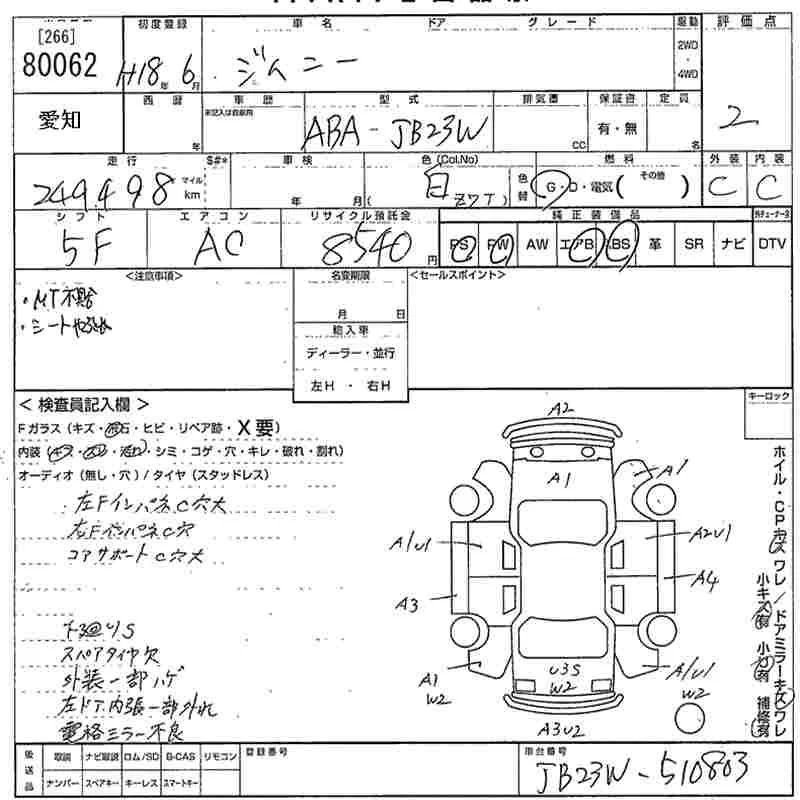 [266]
80062
初度登録
車名
ドア
グレード
駆動
評価点
H18年 6月
ジムニー
2WD
・
4WD
愛知
西暦
年
車歴
※記入は自家用
型式
ABA-JB23W
排気量
CC
保証書
有・無
定員
名
2
走行
249498
マイル
km
S#*
車検
年 月(
色(Col.No)
白
Z7T)
色替
燃料
G・D・電気( その他 )
外装
C
内装
C
シフト
5F
エアコン
AC
リサイクル預託金
8540円
純正装備品
PS PW AW エアB ABS 革 SR ナビ
DTV
<注意事項>
・MT不具合
名変期限
月 日
輸入車
ディーラー・並行
左H ・ 右H
<セールスポイント>
キーロック
< 検査員記入欄 >
Fガラス(キズ・飛石・ヒビ・リペア跡・X要)
内装(キズ・スレ・汚れ・シミ・コゲ・穴・キレ・破れ・割れ)
オーディオ(無し・穴)/タイヤ(スタッドレス)
左FインパネC穴大
右FインパネC穴
コアサポートC穴大
スペアタイヤ欠
外装一部ハゲ
左ドア内張一部外れ
電格ミラー不良
A2
A1
A1
A1U1
A2U1
A3
A4
A1
W2
U3S
W2
A1U1
W2
A3U2
ホイル・CPキズ ワレ/ドアミラーキズ ワレ
小キズ有 小凹有 補修有
後送品
取説 ナビ取説 ロム/SD B-CAS リモコン
ナンバー スペアキー キーレス スマートキー
登録番号
車台番号
JB23W-510803